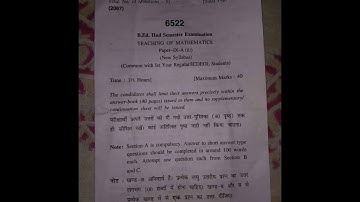 (2067)
6522
B.Ed. IInd Semester Examination
TEACHING OF MATHEMATICS
Paper-IX-A (ii)
(New Syllabus)
(Common with 1st Year Regular/ICDEOL Students)
Time : 1½ Hours] [Maximum Marks : 40
The candidates shall limit their answers precisely within the
answer-book (40 pages) issued to them and no supplementary/
continuation sheet will be issued.
परीक्षार्थी अपने उत्तरों को दी गयी उत्तर-पुस्तिका (40 पृष्ठ) तक
ही सीमित रखें। कोई अतिरिक्त पृष्ठ जारी नहीं किया जायेगा।
Note: Section-A is compulsory. Answer to short answer type
questions should be completed in around 100 words
each. Attempt one question each from Section B
and C.
नोट : खण्ड-अ अनिवार्य है। प्रत्येक लघु उत्तरीय प्रश्न का उत्तर
लगभग 100 शब्दों में होना चाहिए। खण्ड-ब और स से
एक प्रश्न का उत्तर दीजिए।